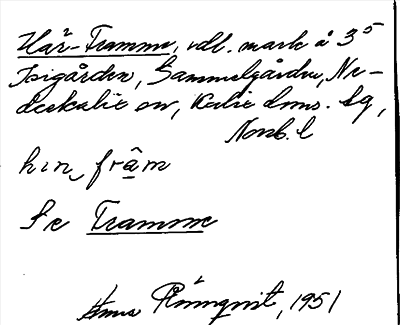 Här-Framme, odl. mark å 3⁵
Isigården, Gammelgården, Ne-
derkalix ov, Kalix dms. Sg,
Norrb. l
hɩn fråm
Se Framme
Rönnqvist, 1951